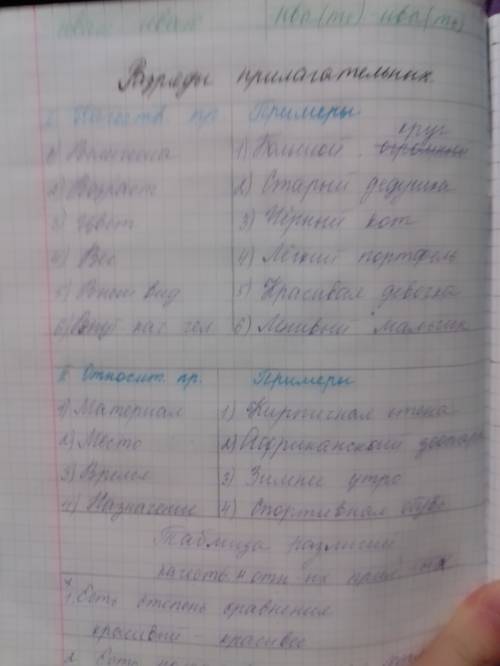 Разряды прилагательных
I Качеств. пр. Примеры
1) Величина 1) Большой круг
2) Возраст 2) Старый дедушка
3) Цвет 3) Чёрный кот
4) Вес 4) Лёгкий портфель
5) Внеш вид 5) Красивая девочка
6) Внут кач чел 6) Ленивый мальчик
II Относит. пр. Примеры
1) Материал 1) Кирпичная стена
2) Место 2) Африканский зоопарк
3) Время 3) Зимнее утро
4) Назначение 4) Спортивная обувь
Таблица различий
качеств и отн их прил-ых
1. Есть степень сравнения
красивый - красивее
2. Есть